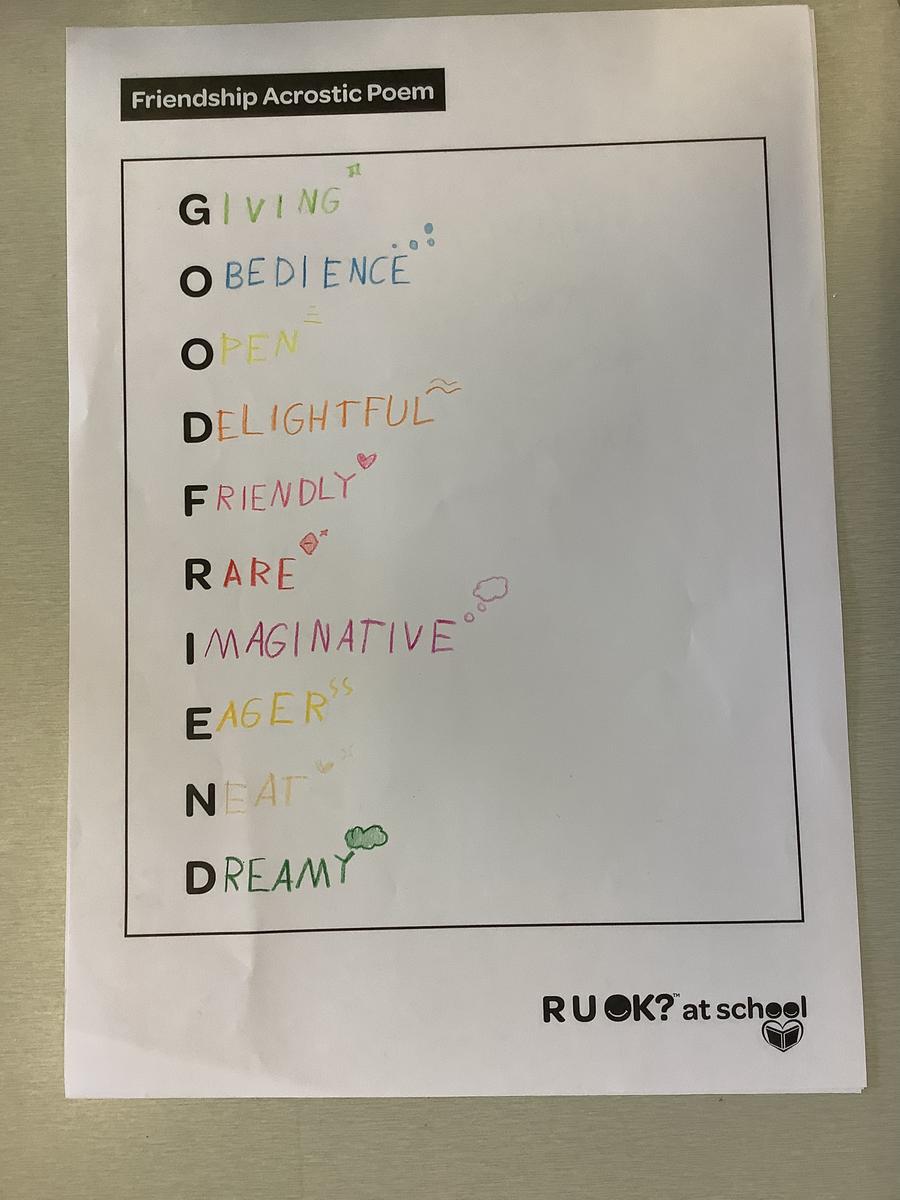 Friendship Acrostic Poem
GIVING
OBEDIENCE
OPEN
DELIGHTFUL
FRIENDLY
RARE
IMAGINATIVE
EAGER
NEAT
DREAMY
R U OK?™ at school